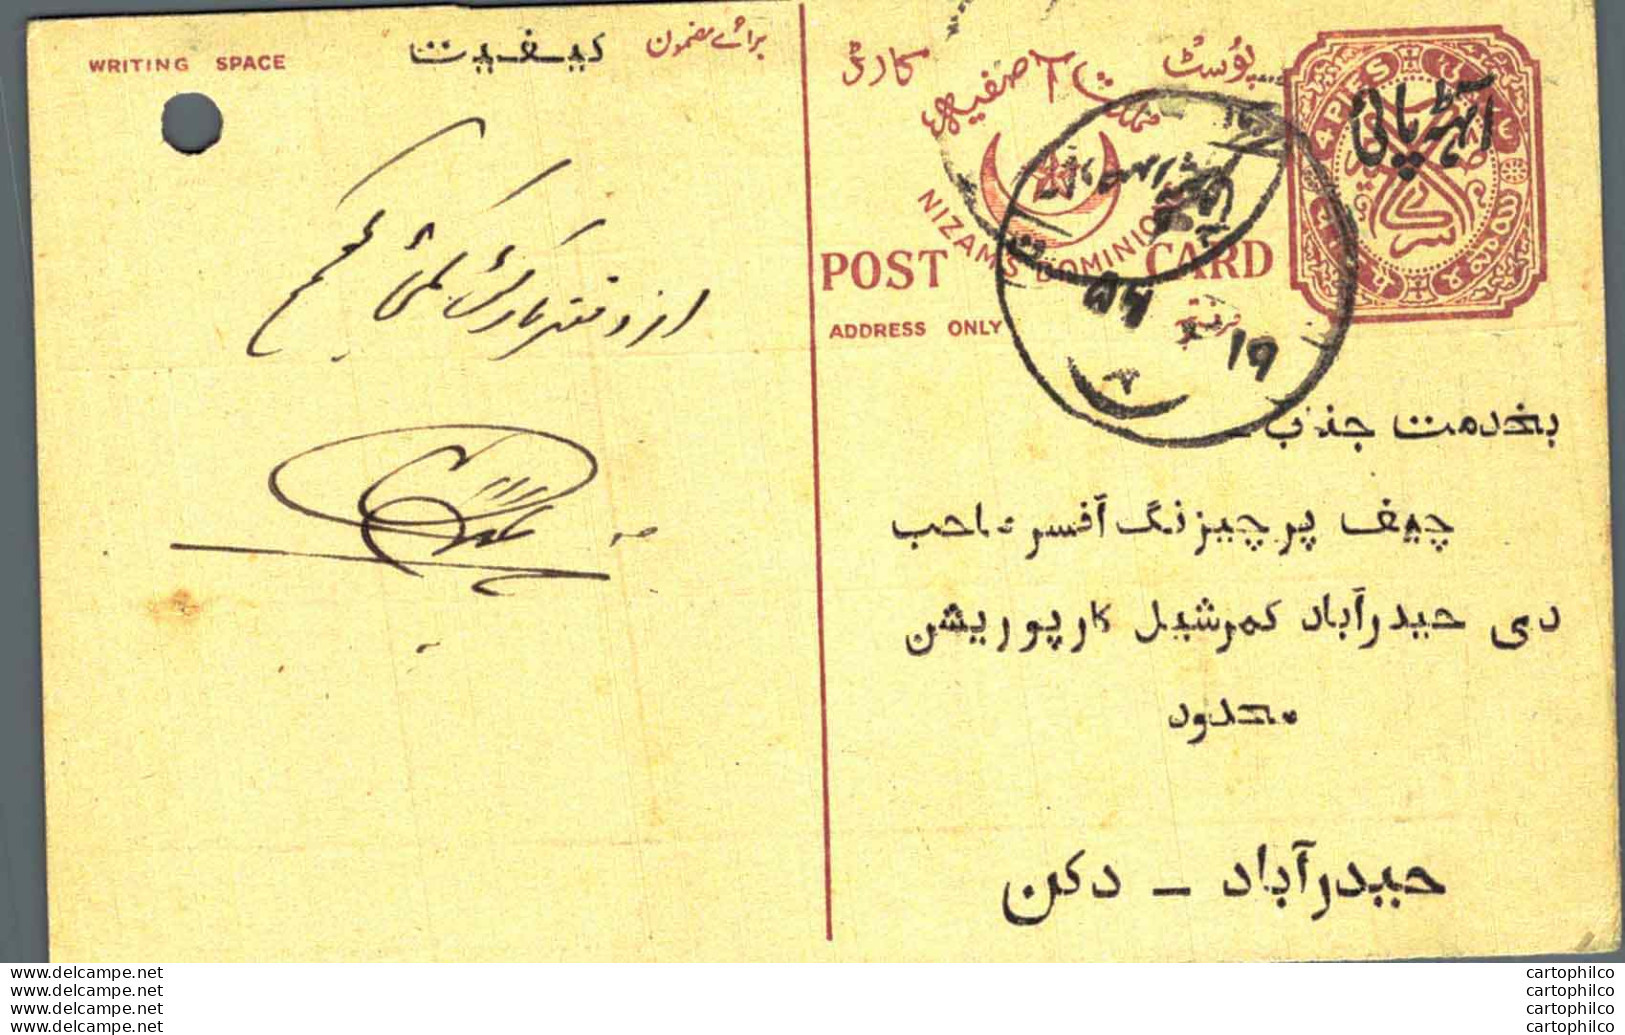 WRITING SPACE
کیفیت
برائے مضمون
از دفتر
پوسٹ کارڈ
NIZAM'S DOMINIONS
POST CARD
ADDRESS ONLY
4 PIES
آٹھ پائی
۱۹
بخدمت جناب
چیف پرچیزنگ آفسر صاحب
دی حیدرآباد کمرشیل کارپوریشن
محدود
حیدرآباد - دکن
www.delcampe.net
www.delcampe.net
www.delcampe.net
www.delcampe.net
cartophilco
cartophilco
cartophilco
cartophilco